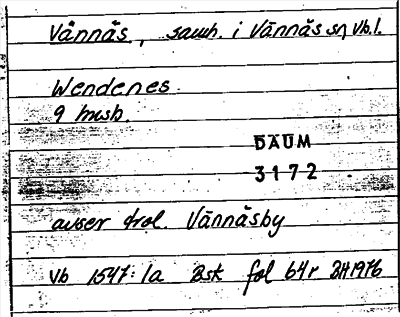 Vännäs, samh. i Vännäs sn Vb.l.
Wendenes
9 husb.
DAUM
3172
avser trol. Vännäsby
Vb 1547:1a Bsk fol 64r BH1976